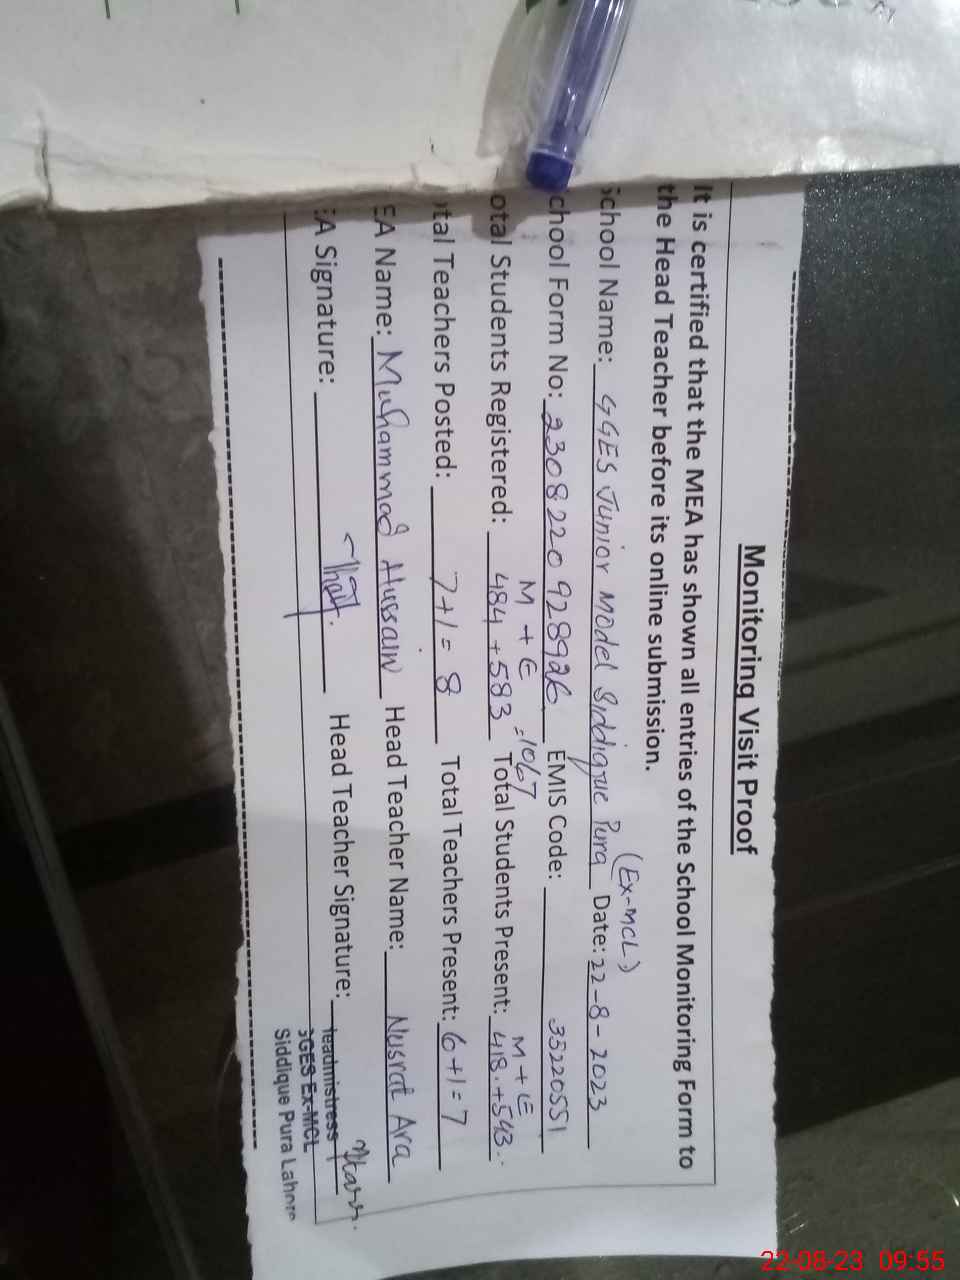 Monitoring Visit Proof
It is certified that the MEA has shown all entries of the School Monitoring Form to
the Head Teacher before its online submission.
(Ex-MCL)
School Name: GGES Junior Model Siddique Pura Date: 22-8-2023
chool Form No: EMIS Code: 35220551
M + E =1067 M + E
otal Students Registered: 484 + 583 Total Students Present: 418 + 543
tal Teachers Posted: 7+1= 8 Total Teachers Present: 6+1=7
EA Name: Muhammad Hussain Head Teacher Name: Nusrat Ara
EA Signature: Head Teacher Signature:
Headmistress
GGES Ex-MCL
Siddique Pura Lahore
22-08-23 09:55